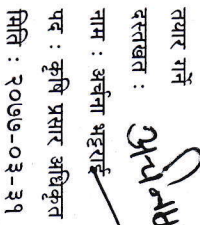 तयार गर्ने
दस्तखत :
नाम : अर्चना भट्टराई
पद : कृषि प्रसार अधिकृत
मिति : २०७७-०३-३१